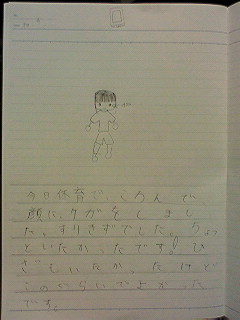 今日体育で、ころんで
顔にケガをしまし
た。すりきずでした。ちょっ
といたかったです!ひ
ざもいたかったけど
このくらいでよかった
です。